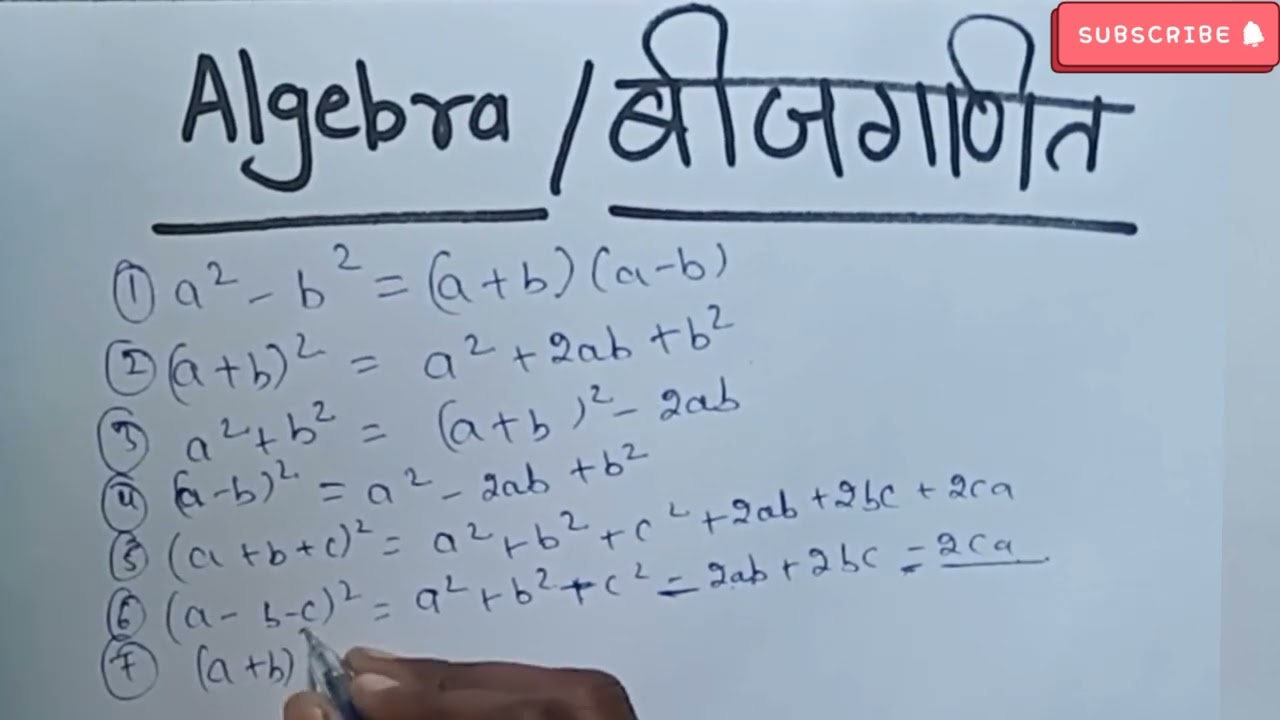 SUBSCRIBE
Algebra / बीजगणित
① a² - b² = (a+b) (a-b)
② (a+b)² = a² + 2ab + b²
③ a² + b² = (a+b)² - 2ab
④ (a-b)² = a² - 2ab + b²
⑤ (a+b+c)² = a² + b² + c² + 2ab + 2bc + 2ca
⑥ (a-b-c)² = a² + b² + c² - 2ab + 2bc - 2ca
⑦ (a+b)